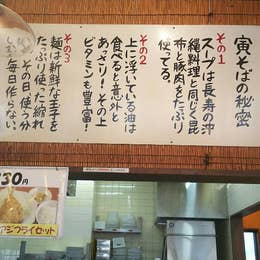 寅そばの秘密
その1
スープは長寿の沖
縄料理と同じく昆
布と豚肉をたっぷり
使ってる。
その2
上に浮いている油は
食べると意外と
あっさり！その上
ビタミンも豊富！
その3
麺は新鮮な玉子を
たっぷり使った縮れ
その日使う分
しか毎日作らない
30円
アジフライセット